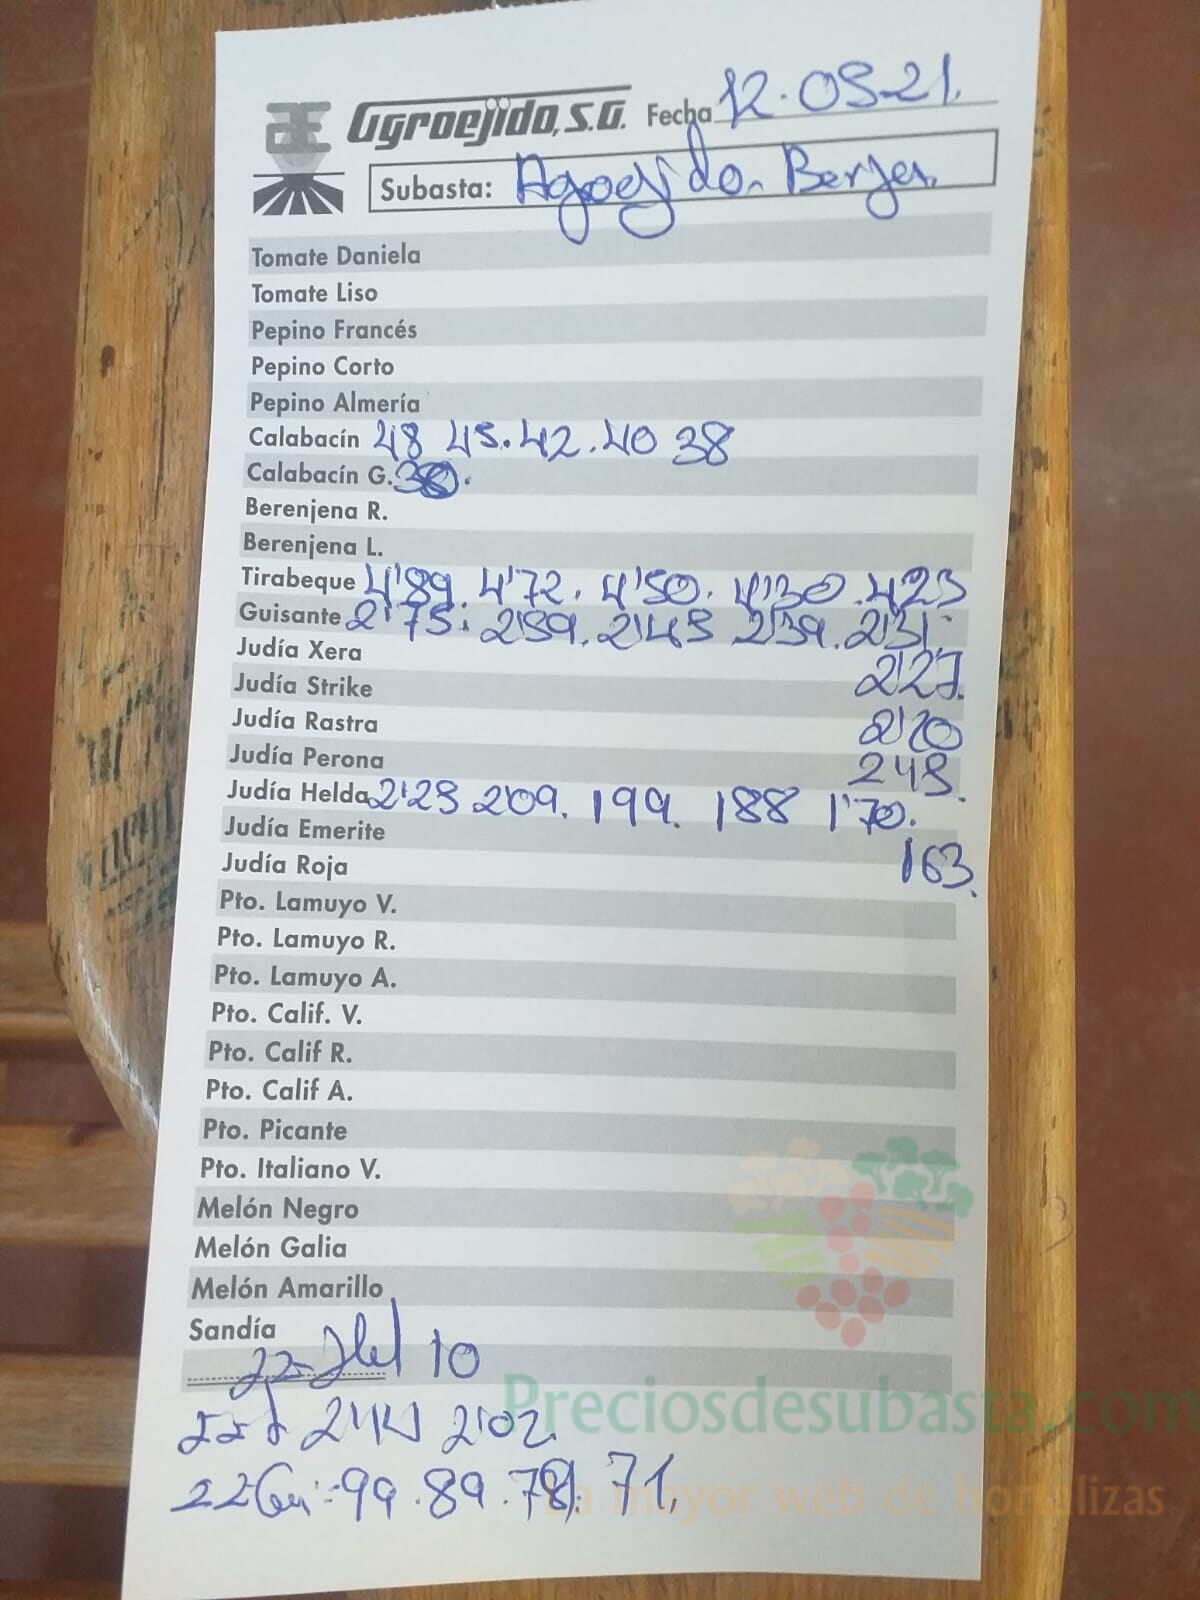 Agroejido, S.A. Fecha 12.05-21.
Subasta: Agroejido. Berja.
Tomate Daniela
Tomate Liso
Pepino Francés
Pepino Corto
Pepino Almería
Calabacín 48 45. 42. 40 38
Calabacín G.
Berenjena R.
Berenjena L.
Tirabeque 4'89. 4'72. 4'50. 4'30. 423
Guisante 2'75. 2'59. 2'45 2'39. 2'31.
Judía Xera 2'27.
Judía Strike
Judía Rastra 2'20
Judía Perona 245.
Judía Helda 2'25 209. 199. 188 1'70.
Judía Emerite
Judía Roja 163.
Pto. Lamuyo V.
Pto. Lamuyo R.
Pto. Lamuyo A.
Pto. Calif. V.
Pto. Calif R.
Pto. Calif A.
Pto. Picante
Pto. Italiano V.
Melón Negro
Melón Galia
Melón Amarillo
Sandía
10
2'02
99. 89. 78. 71.
Preciosdesubasta.com
La mayor web de hortalizas